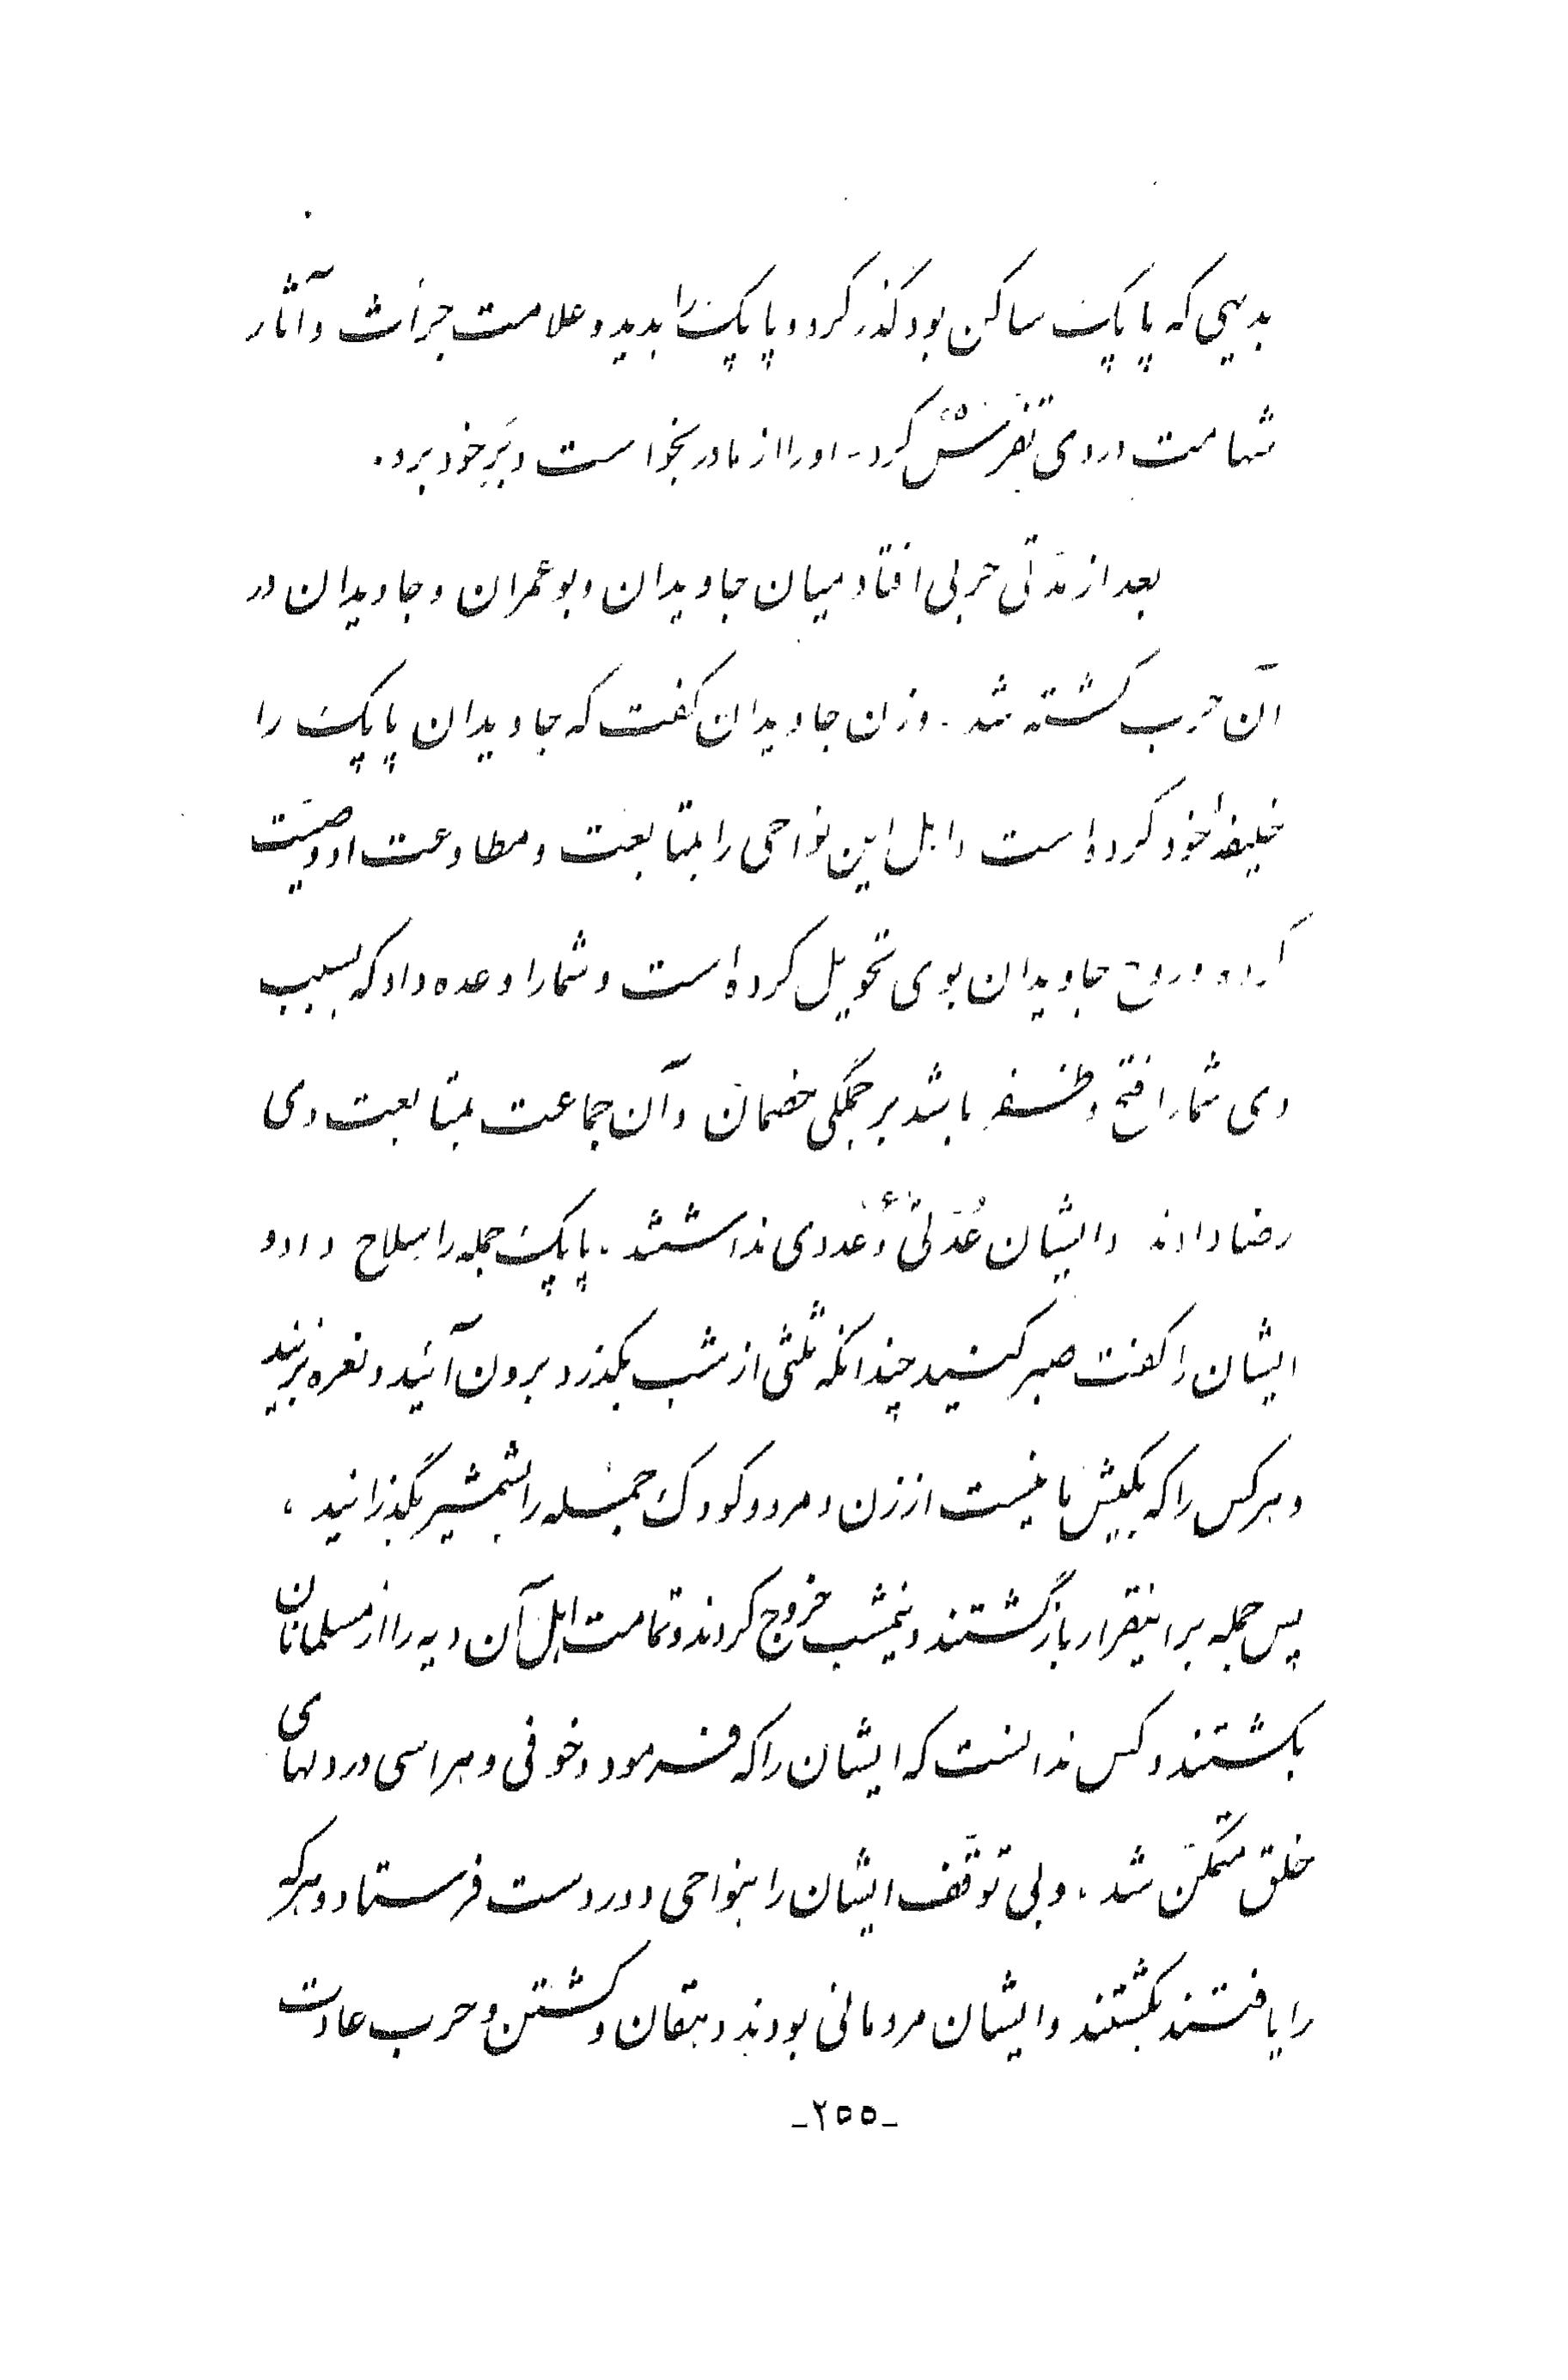 بدیهی که پاپک ساکن بود گذر کرد و پاپک را بدید و علامت جرأت و آثار
شهامت در وی تفرّس کرد - او را از مادر بخواست و بَرِ خود برد .
بعد از مدّتی حربی افتاد میان جاویدان و بوعمران و جاویدان در
آن حرب کشته شد . وزن جاویدان گفت که جاویدان پاپک را
خلیفهٔ خود کرده است و اهل این نواحی را بمتابعت و مطاوعت او وصیّت
کرده و روح جاویدان بوی تحویل کرده است و شما را وعده داد که بسبب
وی شما را فتح و ظفر باشد بر جملگی خصمان و آن جماعت بمتابعت وی
رضا دادند و ایشان عُدّتی و عَددی نداشتند . پاپک جمله را سلاح داد و
ایشان را گفت صبر کنید چندانکه ثُلثی از شب بگذرد برون آئید و نعره بزنید
و هر کس را که بکیش ما نیست از زن و مرد و کودک جمله را بشمشیر بگذرانید ،
پس جمله بر اینقرار بازگشتند و نیمشب خروج کردند و تمامت اهل آن دیه را از مسلمانان
بکشتند و کس ندانست که ایشان را که فرمود و خوفی و هراسی در دلهای
خلق متمکّن شد ، و بی توقّف ایشان را بنواحی دوردست فرستاد و هر که
را یافتند بکشتند و ایشان مردمانی بودند دهقان و کشتن و حرب عادت
-۲۵۵-